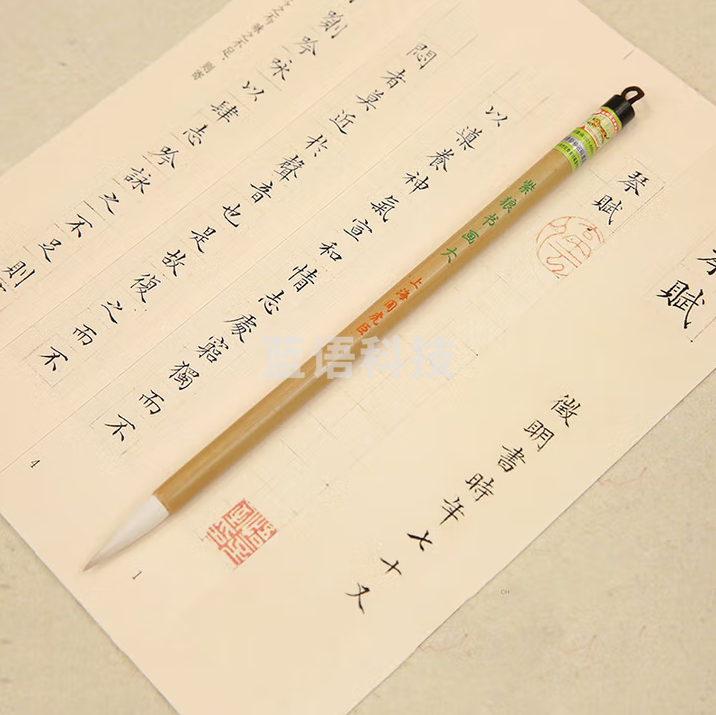 賦
琴賦
徵明書時年七十又
以導養神氣宣和情志處窮獨而不
悶者莫近於聲音也是故復之而不
吟咏以肆志吟詠之不足則
紫狼书画大
上海周虎臣
蓝语科技
1
4